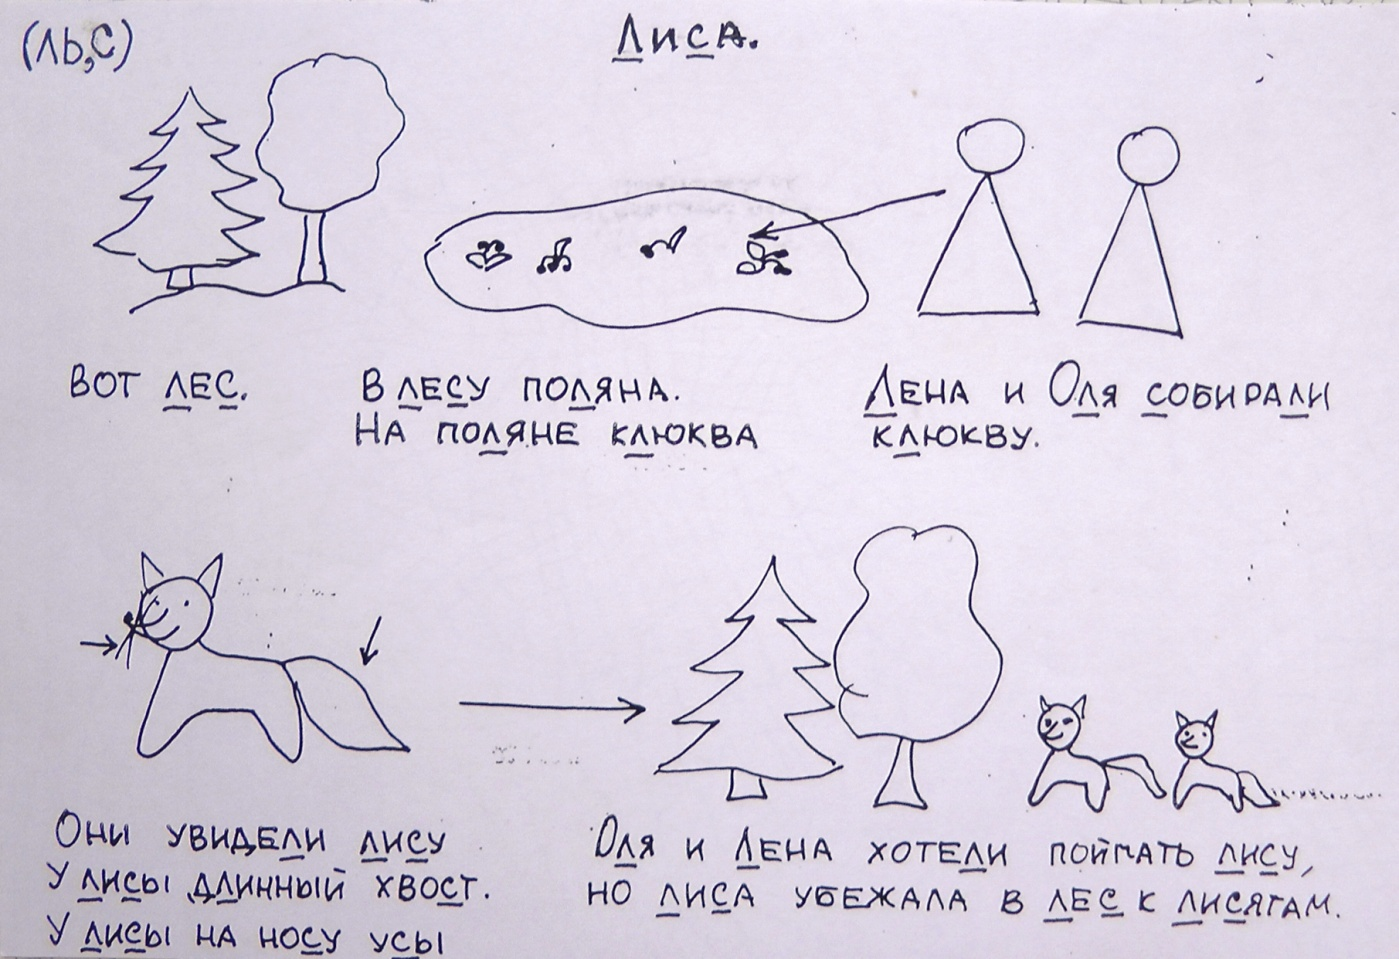 (ЛЬ,С)
ЛИСА.
ВОТ ЛЕС.
В ЛЕСУ ПОЛЯНА.
НА ПОЛЯНЕ КЛЮКВА
ЛЕНА И ОЛЯ СОБИРАЛИ
КЛЮКВУ.
ОНИ УВИДЕЛИ ЛИСУ
У ЛИСЫ ДЛИННЫЙ ХВОСТ.
У ЛИСЫ НА НОСУ УСЫ
ОЛЯ И ЛЕНА ХОТЕЛИ ПОЙМАТЬ ЛИСУ,
НО ЛИСА УБЕЖАЛА В ЛЕС К ЛИСЯТАМ.